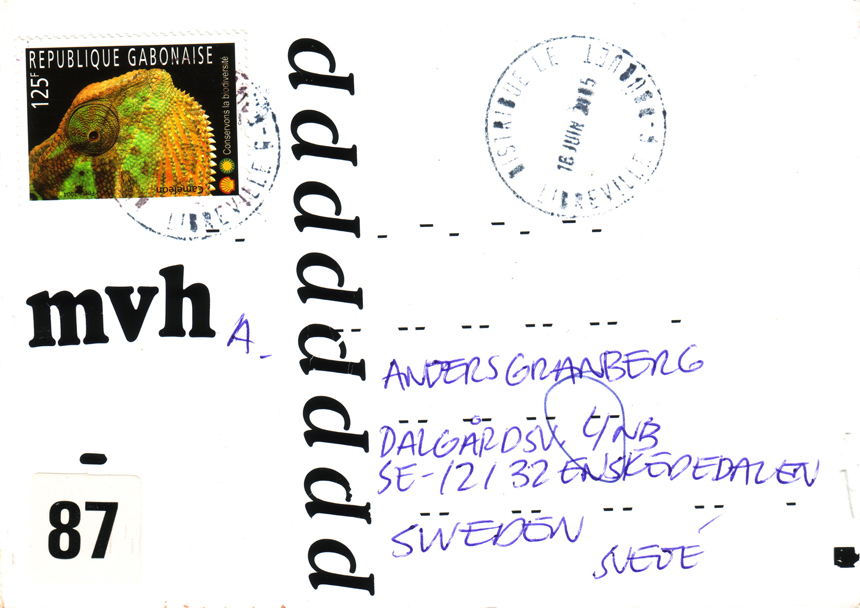 REPUBLIQUE GABONAISE
125F
Conservons la biodiversité
Caméléon
LIBREVILLE
16 JUIN
LIBREVILLE
mvh
A.
d d d d d d d d
ANDERS GRANBERG
DALGÅRDSV. 4/NB
SE-12132 ENSKEDEDALEN
SWEDEN
SVEDE
87